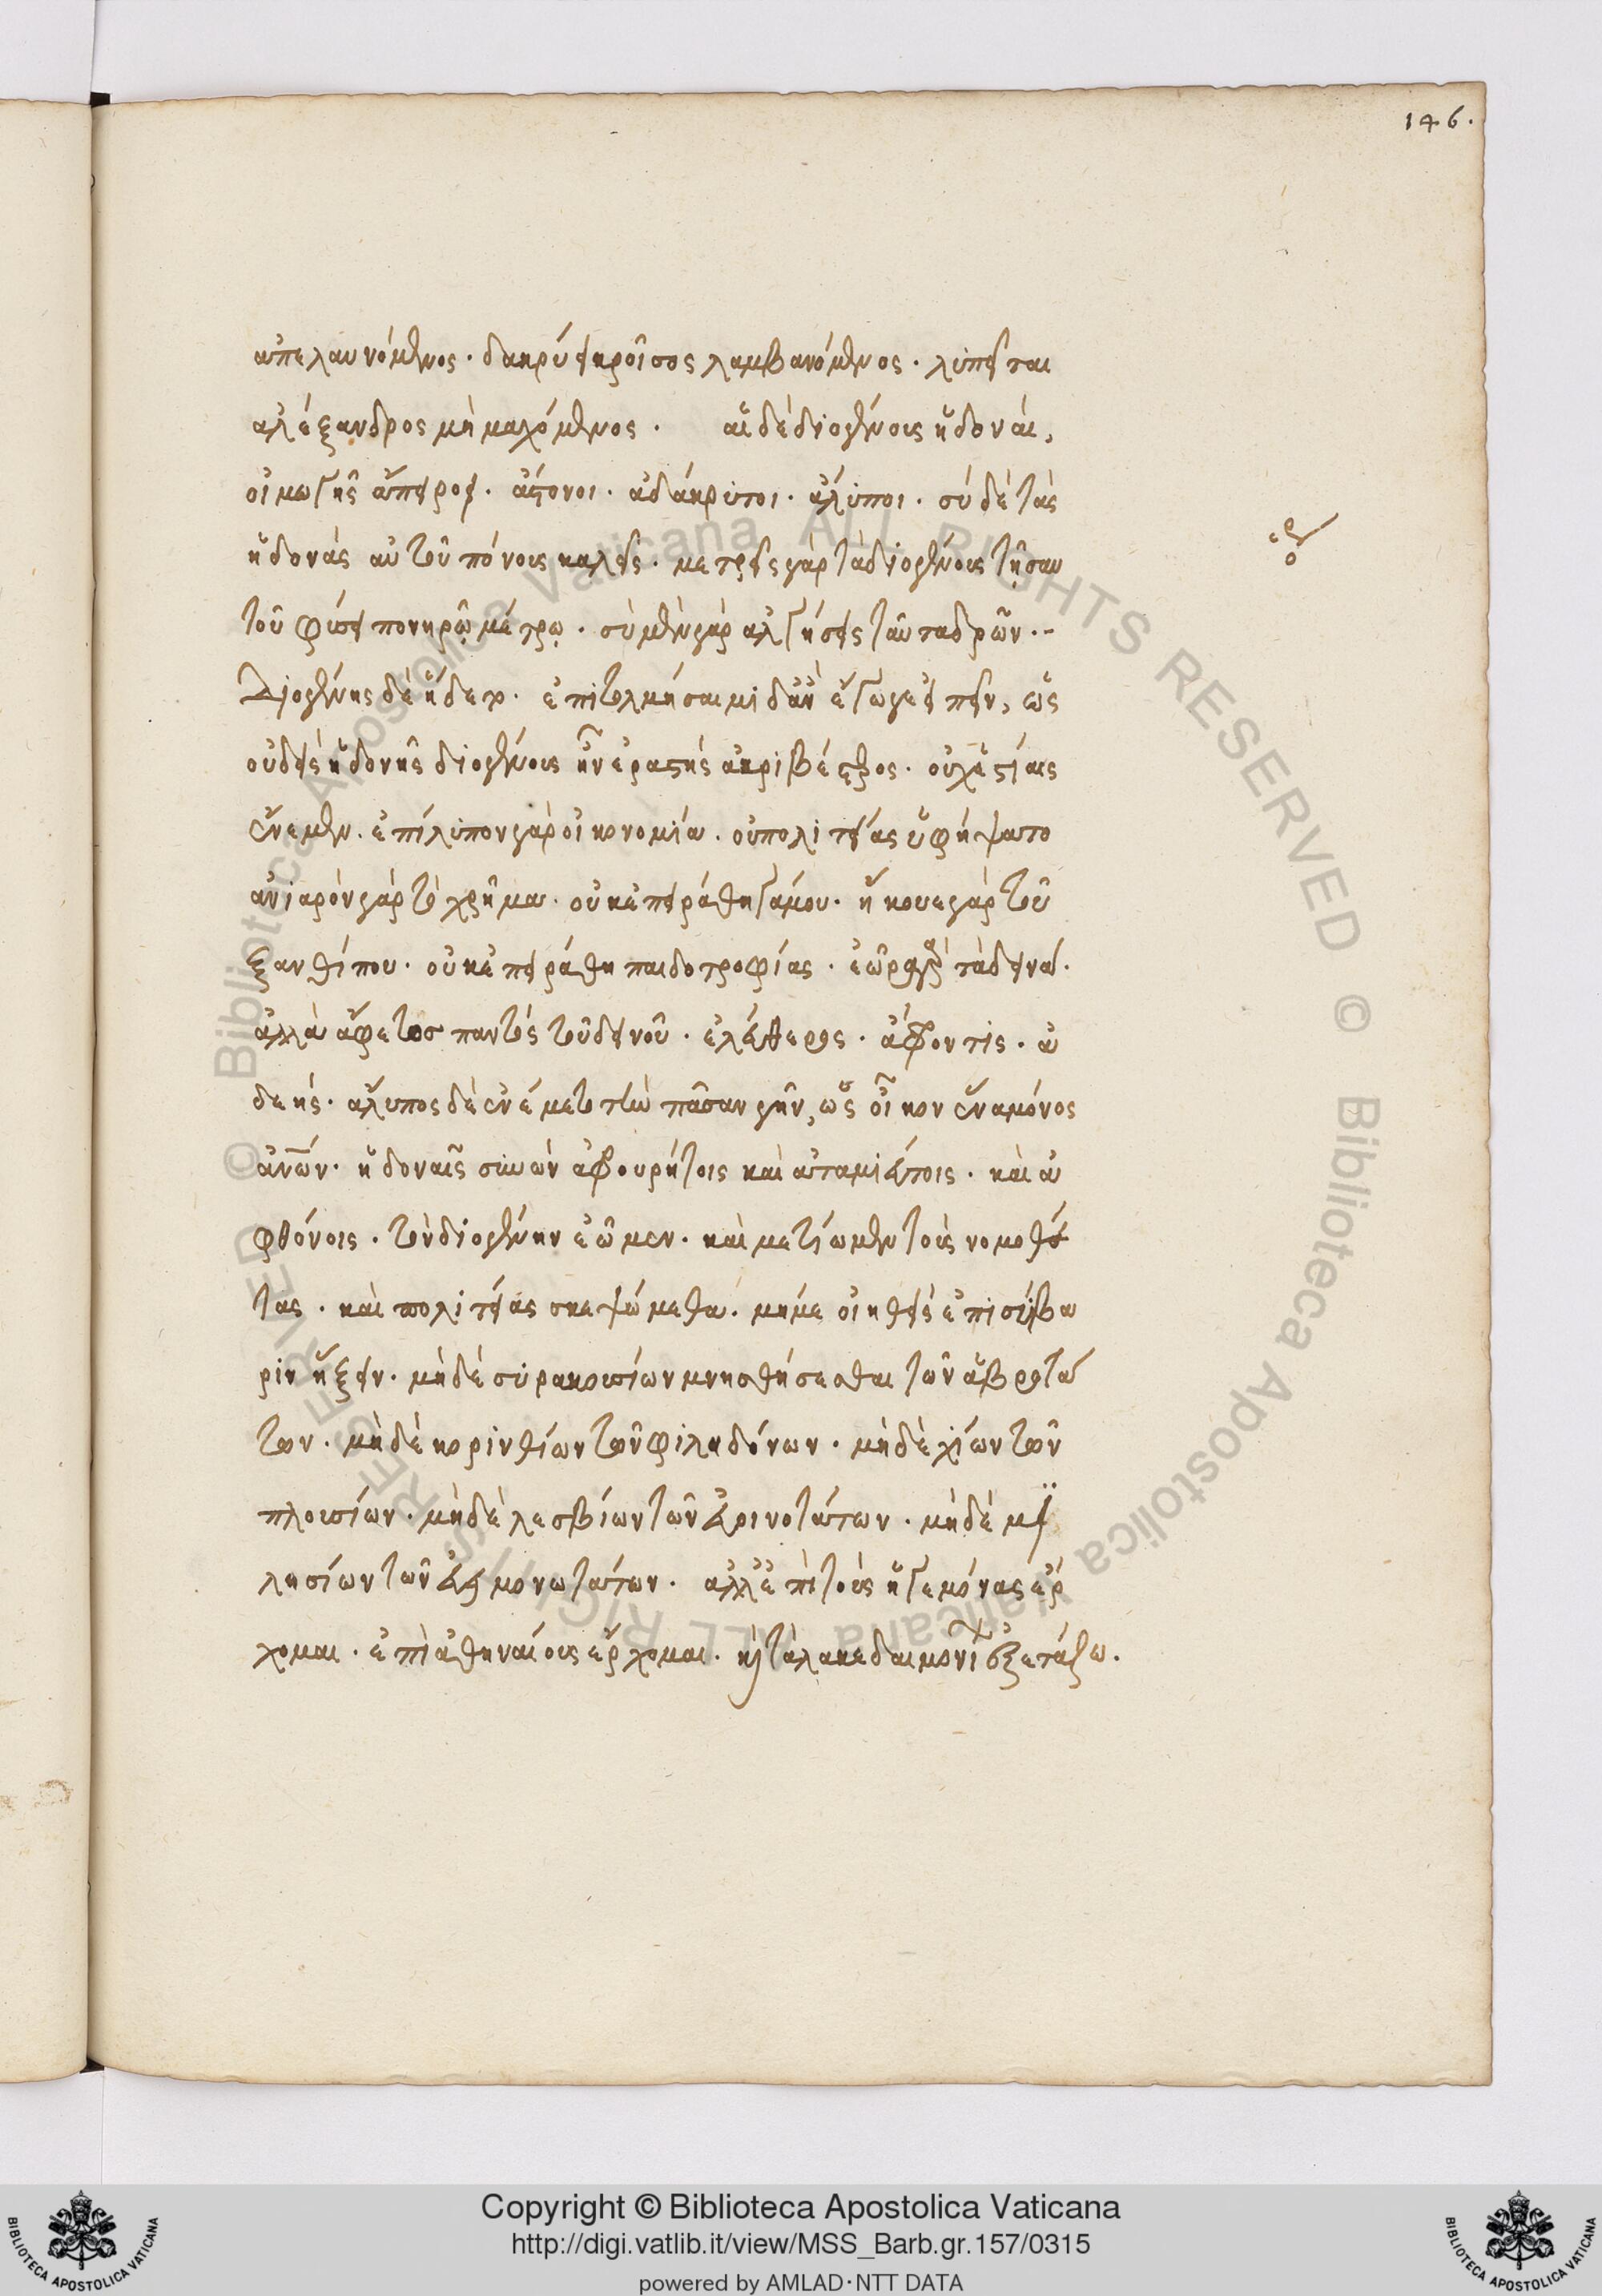 146.
ἀπελαυνόμενος · δακρύει κροῖσος λαμβανόμενος · λυπεῖται
ἀλέξανδρος μὴ μαχόμενος · αἱ δὲ διογένους ἡδοναί,
οἰμωγῆς ἄπειροι · ἄστονοι · ἀδάκρυτοι · ἄλυποι · σὺ δὲ τὰς
ἡδονὰς αὐτοῦ πόνους καλεῖς · μετρεῖς γὰρ τὰ διογένους τῇ σαυ
τοῦ φύσει πονηρῷ μέτρῳ · σὺ μὲν γὰρ ἀλγήσεις ταῦτα δρῶν ·-
Διογένης δὲ ἥδετο · ἐπιτολμήσαιμι δ' ἂν ἔγωγε εἰπεῖν, ὡς
οὐδεὶς ἡδονῆς διογένους ἦν ἐραστὴς ἀκριβέστερος · οὐχ ἑστίας
ἔνεμεν · ἐπίλυπον γὰρ οἰκονομία · οὐ πολιτείας ὑφήψατο
ἀνιαρὸν γὰρ τὸ χρῆμα · οὐκ ἐπειράθη γάμου · ἤκουε γὰρ τοῦ
ξανθίπου · οὐκ ἐπειράθη παιδοτροφίας · ἑώρα γὰρ τὰ δεινά ·
ἀλλὰ ἄφετος παντὸς τοῦ δεινοῦ · ἐλεύθερος · ἄφροντις · ἀ
δεής · ἄλυπος δὲ ἐνέμετο τὴν πᾶσαν γῆν, ὡς οἶκον ἕνα μόνος
ἀνων · ἡδοναῖς συνὼν ἀφρουρήτοις καὶ ἀταμιεύτοις · καὶ ἀ
φθόνοις · τὸν διογένην ἐῶμεν · καὶ μετίωμεν τοὺς νομοθέ
τας · καὶ πολιτείας σκεψώμεθα · μή με οἰηθεὶς ἐπὶ σύβα
ριν ἥξειν · μὴδὲ συρακουσίων μνησθήσεσθαι τῶν ἁβροτά
των · μὴδὲ κορινθίων τῶν φιληδόνων · μὴδὲ χίων τῶν
πλουσίων · μὴδὲ λεσβίων τῶν εὐρινοτάτων · μὴδὲ μϊ
λησίων τῶν εὐειμονωτάτων · ἀλλ' ἐπὶ τοὺς ἡγεμόνας ἔρ
χομαι · ἐπὶ ἀθηναίους ἔρχομαι · καὶ τὰ λακεδαιμονίων ἐξετάζω.
Copyright © Biblioteca Apostolica Vaticana
http://digi.vatlib.it/view/MSS_Barb.gr.157/0315
powered by AMLAD·NTT DATA